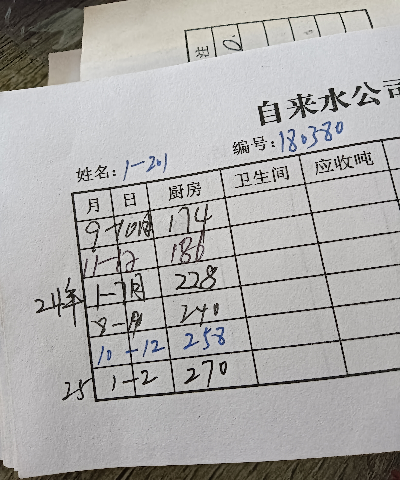 自来水公司
姓名：1-201 编号：180380
月 日 厨房 卫生间 应收吨
9-10月 174
11-12 186
24年 1-7月 228
8-9 240
10-12 258
25 1-2 270